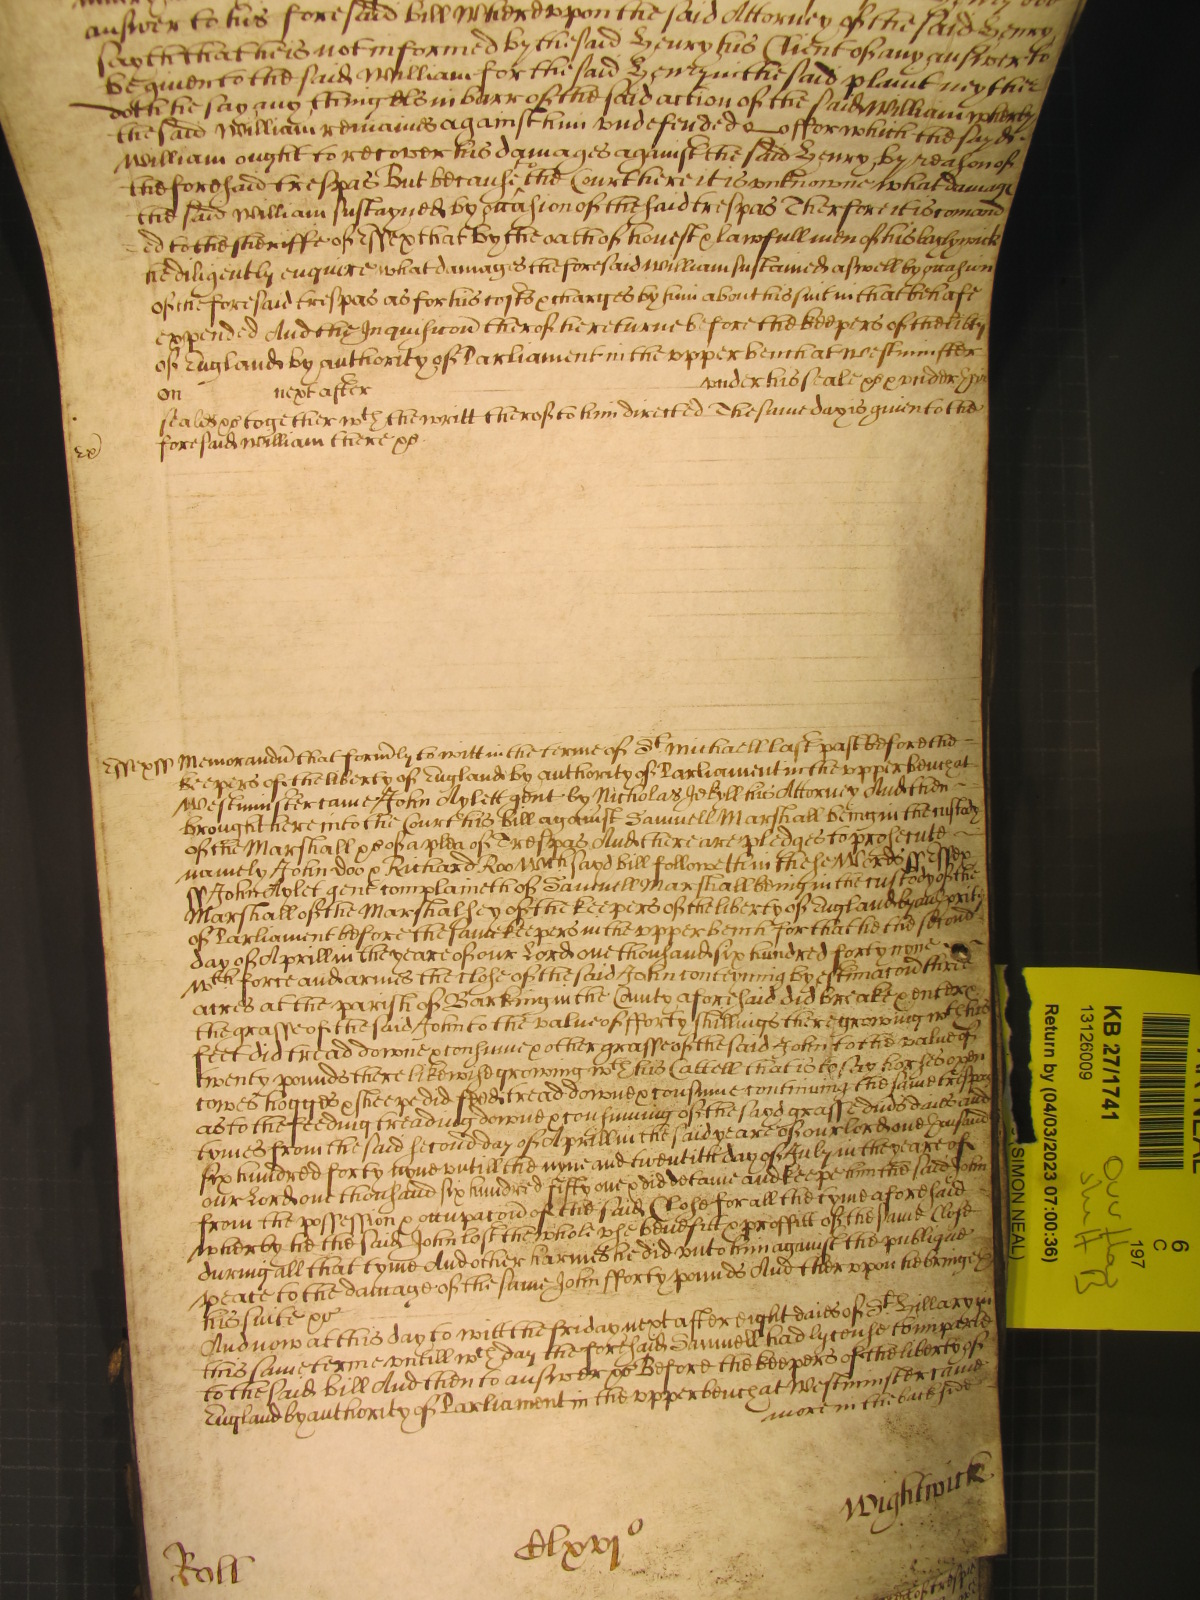 answer to his foresaid bill Whereuppon the said Attorney of the said Henry
sayth that he is not informed by the said Henry his Client of any answer to
be given to the said William for the said Henry in the said plaint neyther
doth he say any thing els in barr of the said action of the said William wherby
the said William remaines against him undefended off for which the sayd
William ought to recover his damages against the said Henry by reason of
the foresaid trespas But because to the Court here it is unknowne what damage
the said William sustayned by occasion of the said trespas Therfore it is comand
ed to the sheriffe of Essex that by the oath of honest & lawfull men of his baylywick
he diligently enquire what damages the foresaid William sustained aswell by occasion
of the foresaid trespas as for his costs & charges by him about his suit in that behafe
expended And the Inquisicon therof he returne before the keepers of the liberty
of England by authority of Parliament in the upper bench at Westminster
on next after under his seale &c & under the
seales &c together wth the writt therof to him directed The same day is given to the
foresaid William there &c
Essex ss Memorandu that formerly to witt in the terme of St Michaell last past before the
keepers of the liberty of England by authority of Parliament in the upper bench at
Westminster came John Aylett gent by Nicholas Jekyll his Attorney And then
brought here into the Court his bill against Samuell Marshall being in the custody
of the Marshall &c of a plea of Trespas And there are pledges to prosecute
namely John Doo & Richard Roo Wch sayd bill followeth in these Words ss Essex
ss John Aylet gent complaineth of Samuell Marshall being in the custody of the
Marshall of the Marshalsey of the keepers of the liberty of England by authority
of Parliament before the same keepers in the upper bench for that he the second
day of Aprill in the yeare of our Lord one thousand six hundred forty nyne
wth force and armes the close of the said John conteyning by estimacon three
acres at the parish of Barking in the County aforesaid did breake & enter &
the grasse of the said John to the value of fforty shillings there growing wth his
feet did tread downe & consume & other grasse of the said John to the value of
twenty pounds there likewise growing wth his Cattell that is to say horses oxen
cowes hogges & sheepe did feed tread downe & consume continuing the same trespas
as to the feeding treading downe & consuming of the sayd grasse divs daies and
tymes from the said second day of Aprill in the said yeare of our lord one thousand
six hundred forty nyne untill the nyne and twentith day of July in the yeare of
our Lord one thousand six hundred fifty one & did detaine and keepe him the said John
from the possession & occupacon of the said Close for all the tyme aforesaid
wherby he the said John lost the whole use benefitt & proffitt of the same Close
during all that tyme And other harmes he did unto him against the publique
peace to the damage of the same John fforty pounds And therupon he bringeth
his suite &c
And now at this day to witt the friday next after eight daies of St Hillary in
this same terme untill wch day the foresaid Samuell had lycense to imparle
to the said bill And then to answer &c Before the keepers of the liberty of
England by authority of Parliament in the upper bench at Westminster came
more in the back side
Wightwick
Roll Clxvi o
KB 27/1741
13126009
Return by (04/03/2023 07:00:36)
(SIMON NEAL)
6
C
197